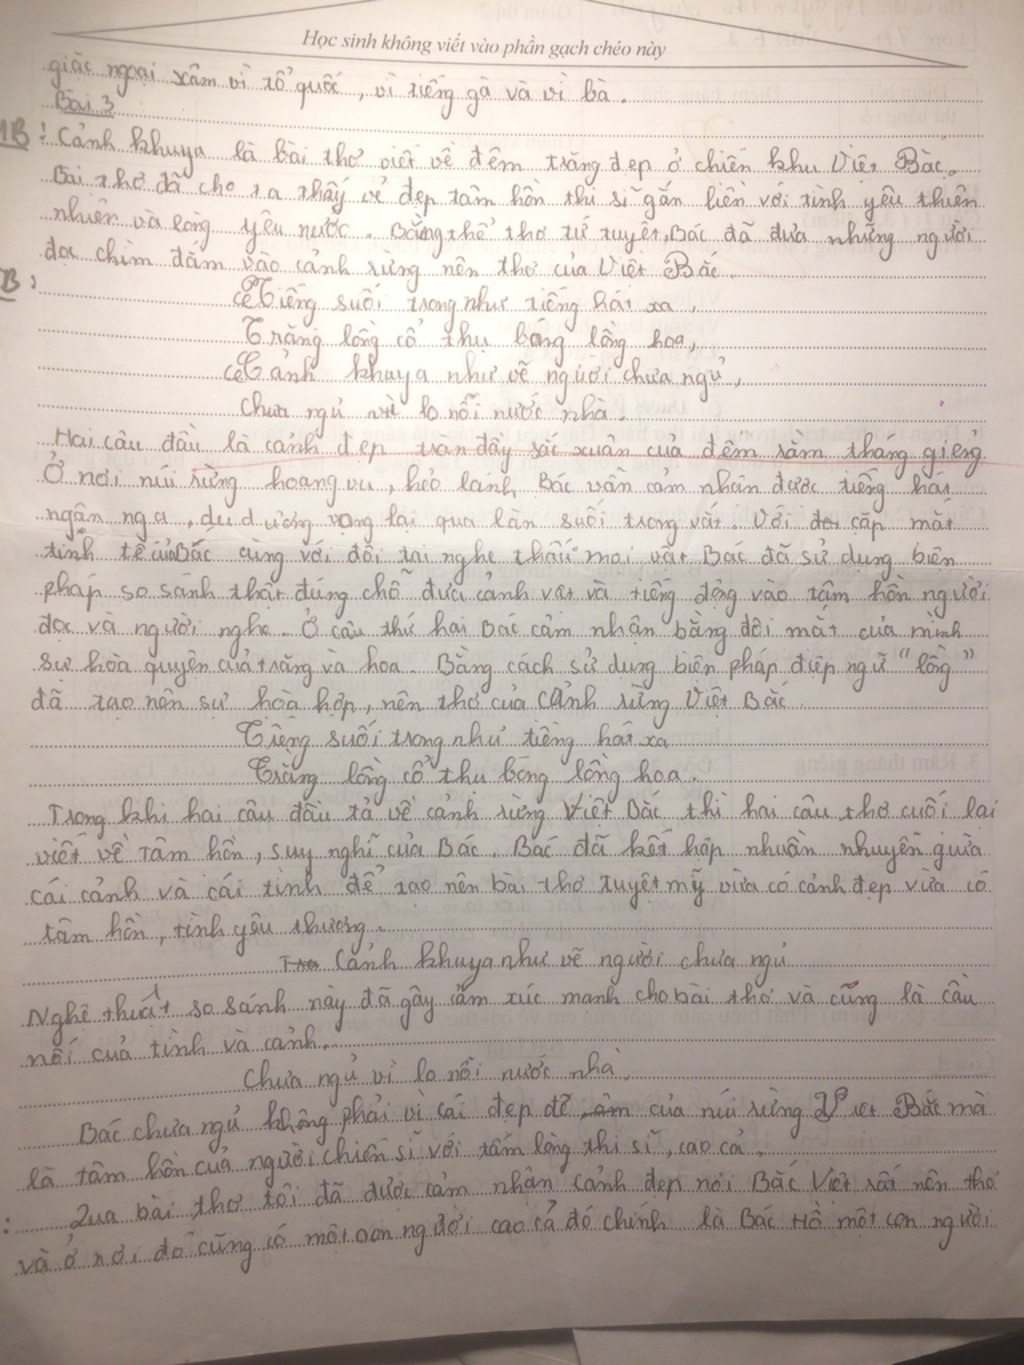 Học sinh không viết vào phần gạch chéo này
giặc ngoại xâm vì tổ quốc, vì tiếng gà và vì bà.
Bài 3
MB: Cảnh khuya là bài thơ viết về đêm trăng đẹp ở chiến khu Việt Bắc.
Bài thơ đã cho ta thấy vẻ đẹp tâm hồn thi sĩ gắn liền với tình yêu thiên
nhiên và lòng yêu nước. Bằng thể thơ tứ tuyệt, Bác đã đưa những người
đọc chìm đắm vào cảnh rừng nên thơ của Việt Bắc.
B:
Tiếng suối trong như tiếng hát xa,
Trăng lồng cổ thụ bóng lồng hoa,
Cảnh khuya như vẽ người chưa ngủ,
Chưa ngủ vì lo nỗi nước nhà.
Hai câu đầu là cảnh đẹp tràn đầy sắc xuân của đêm rằm tháng giêng
Ở nơi núi rừng hoang vu, hẻo lánh, Bác vẫn cảm nhận được tiếng hát
ngân nga, du dương vọng lại qua làn suối trong vắt. Với cặp mắt
tinh tế của Bác cùng với đôi tai nghe thấu mọi vật Bác đã sử dụng biện
pháp so sánh thật đúng chỗ đưa cảnh vật và tiếng động vào tâm hồn người
đọc và người nghe. Ở câu thứ hai Bác cảm nhận bằng đôi mắt của mình
sự hòa quyện của trăng và hoa. Bằng cách sử dụng biện pháp điệp ngữ "lồng"
đã tạo nên sự hoà hợp, nên thơ của cảnh rừng Việt Bắc.
Tiếng suối trong như tiếng hát xa
Trăng lồng cổ thụ bóng lồng hoa.
Trong khi hai câu đầu tả về cảnh rừng Việt Bắc thì hai câu thơ cuối lại
viết về tâm hồn, suy nghĩ của Bác. Bác đã kết hợp nhuần nhuyễn giữa
cái cảnh và cái tình để tạo nên bài thơ tuyệt mỹ vừa có cảnh đẹp vừa có
tâm hồn, tình yêu thương.
Cảnh khuya như vẽ người chưa ngủ
Nghệ thuật so sánh này đã gây xúc mạnh cho bài thơ và cũng là cầu
nối của tình và cảnh.
Chưa ngủ vì lo nỗi nước nhà.
Bác chưa ngủ không phải vì cái đẹp của núi rừng Việt Bắc mà
là tâm hồn của người chiến sĩ với tấm lòng thi sĩ, cao cả.
: Qua bài thơ tôi đã được cảm nhận cảnh đẹp nơi Bắc Việt rất nên thơ
và ở nơi đó cũng có một con người cao cả đó chính là Bác Hồ một con người